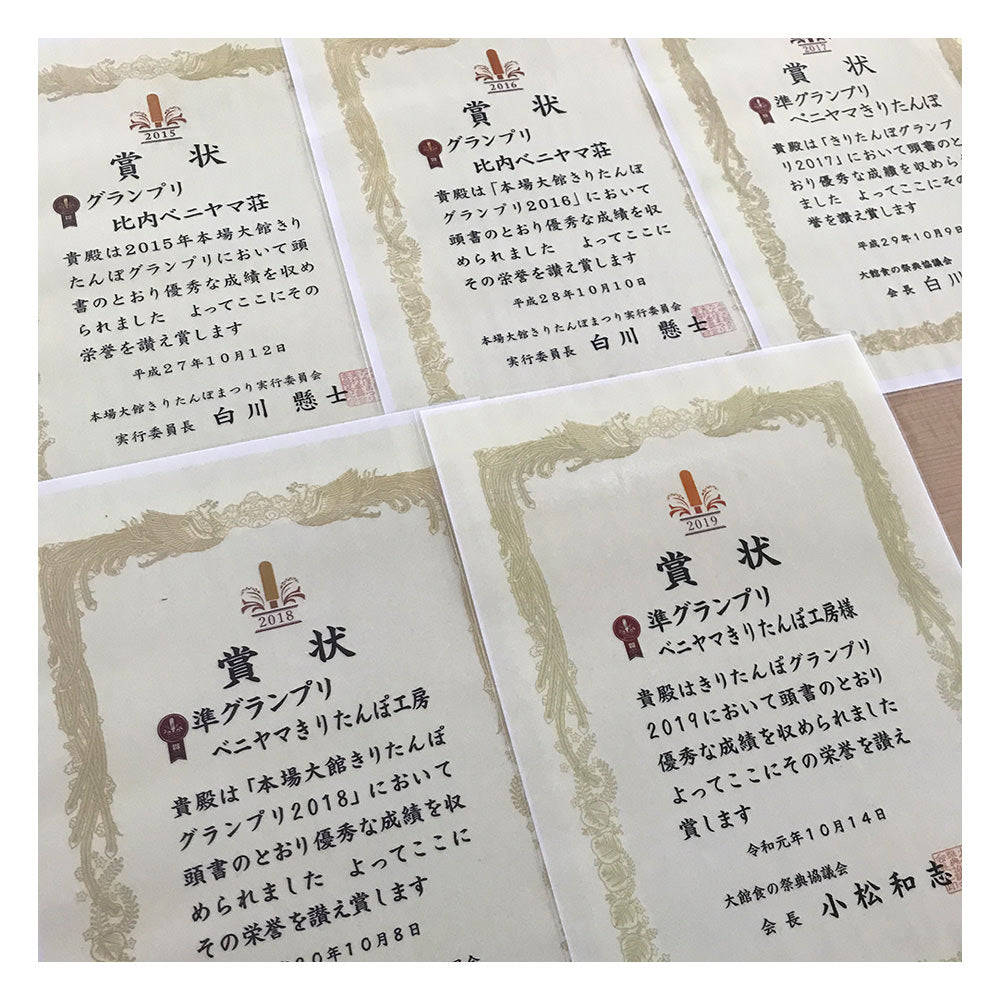 2015
賞 状
グランプリ
比内ベニヤマ荘
貴殿は2015年本場大館きり
たんぽグランプリにおいて頭
書のとおり優秀な成績を収め
られました　よってここにその
栄誉を讃え賞します
平成27年10月12日
本場大館きりたんぽまつり実行委員会
実行委員長 白川 懸士
2016
賞 状
グランプリ
比内ベニヤマ荘
貴殿は「本場大館きりたんぽ
グランプリ2016」において
頭書のとおり優秀な成績を収
められました　よってここに
その栄誉を讃え賞します
平成28年10月10日
本場大館きりたんぽまつり実行委員会
実行委員長 白川 懸士
2017
賞 状
準グランプリ
ベニヤマきりたんぽ
貴殿は「きりたんぽグランプ
リ2017」において頭書のと
おり優秀な成績を収められ
ました　よってここにその
誉を讃え賞します
平成29年10月9日
大館食の祭典協議会
会長 白川
2018
賞 状
準グランプリ
ベニヤマきりたんぽ工房
貴殿は「本場大館きりたんぽ
グランプリ2018」において
頭書のとおり優秀な成績を収
められました　よってここに
その栄誉を讃え賞します
0年10月8日
2019
賞 状
準グランプリ
ベニヤマきりたんぽ工房様
貴殿はきりたんぽグランプリ
2019において頭書のとおり
優秀な成績を収められました
よってここにその栄誉を讃え
賞します
令和元年10月14日
大館食の祭典協議会
会 長 小松和志